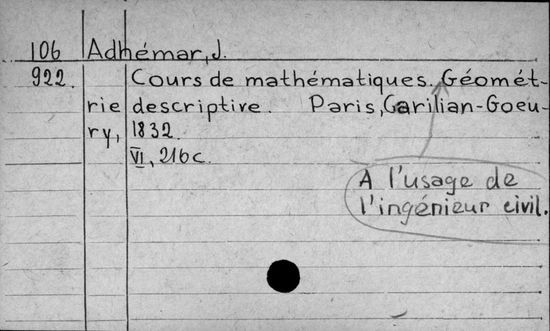 106 Adhémar, J.
922. Cours de mathématiques. Géomét-
rie descriptive. Paris, Carilian-Goeu-
ry, 1832.
VI, 216 c.
A l'usage de
l'ingénieur civil.